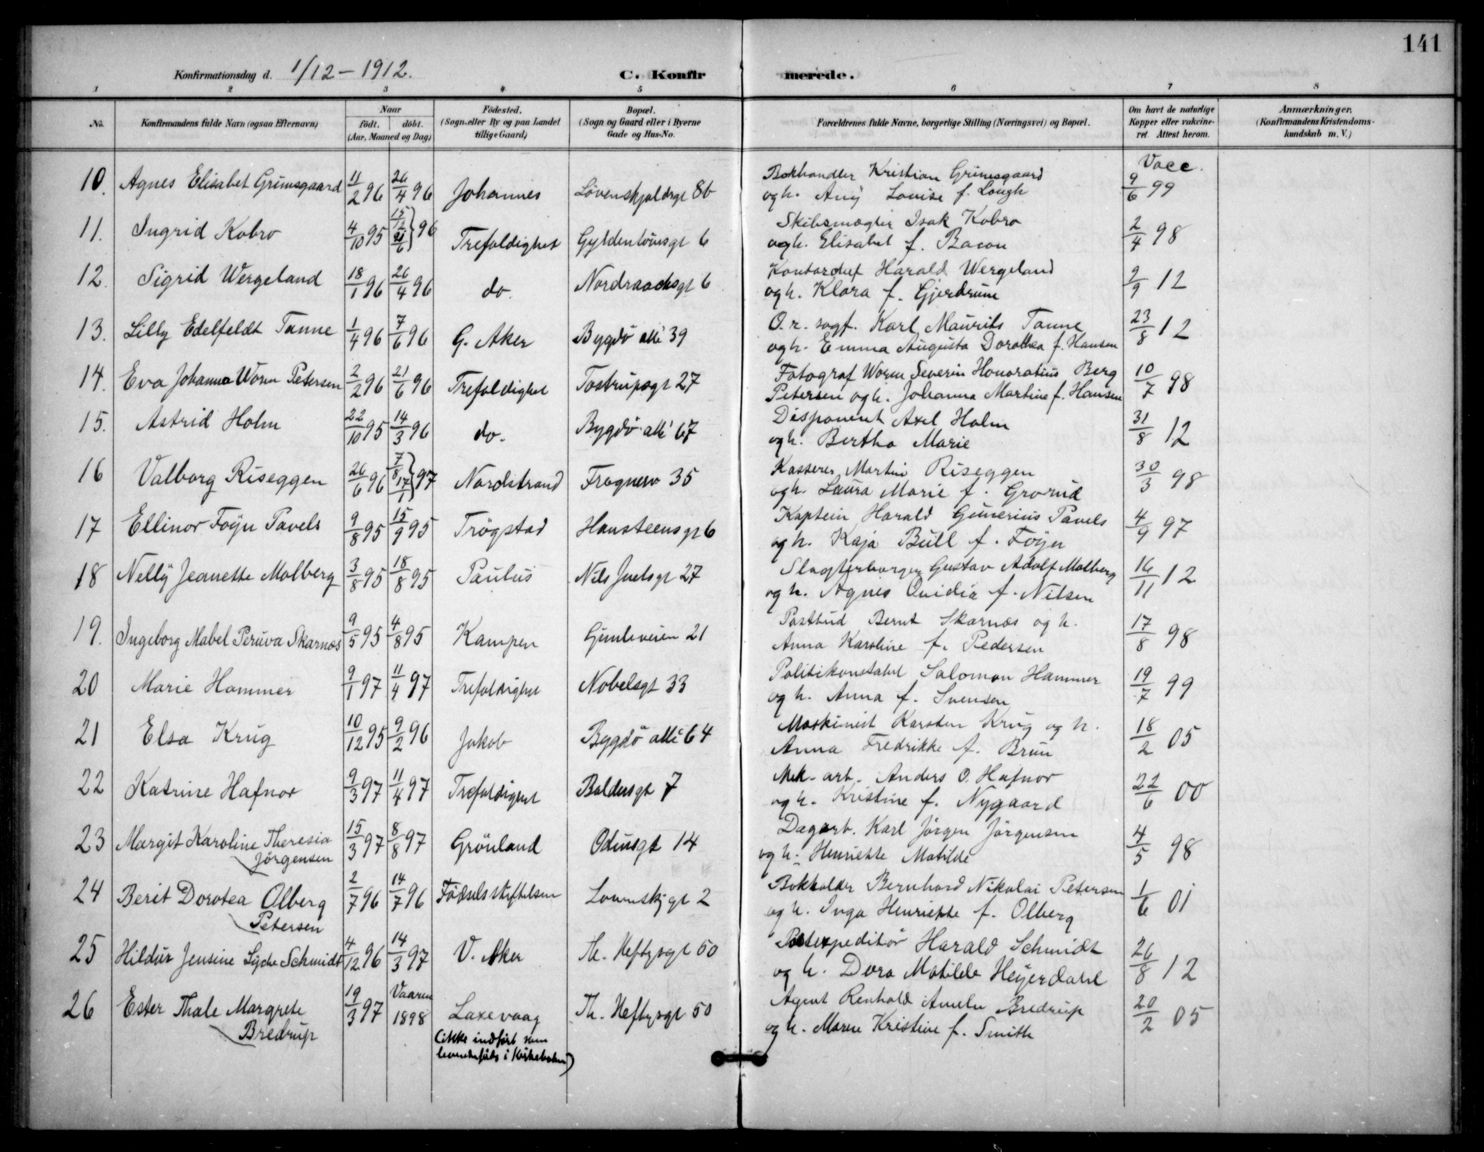 141
Konfirmationsdag d. 1/12 - 1912. C. Konfirmerede.
1 2 3 4 5 6 7 8
No. Konfirmandens fulde Navn (ogsaa Efternavn) Naar født. døbt. (Aar, Maaned og Dag) Fødested. (Sogn eller By og paa Landet tillige Gaard) Bopæl. (Sogn og Gaard eller i Byerne Gade og Hus-No. Forældrenes fulde Navne, borgerlige Stilling (Næringsvei) og Bopæl. Om havt de naturlige Kopper eller vaccineret Attest herom. Anmærkninger. (Konfirmandens Kristendomskundskab m. V.)
Vacc.
10. Agnes Elisabet Grimsgaard 11/2 96 26/4 96 Johannes Løvenskjoldsgt 8b Bokhandler Kristian Grimsgaard 9/6 99
og h. Amy Louise f. Lough
11. Ingrid Kobro 4/10 95 15/12 21/6 } 96 Trefoldighet Gyldenløvesgt 6 Skibsmægler Isak Kobro 2/4 98
og h. Elisabet f. Bacon
12. Sigrid Wergeland 18/1 96 26/4 96 do. Nordraachsgt 6 Kontorchef Harald Wergeland 2/9 12
og h. Klara f. Gjerdrum
13. Lilly Edelfeldt Tanne 1/4 96 7/6 96 G. Aker Bygdø allé 39 O.r. sagf. Karl Maurits Tanne 23/8 12
og h. Emma Augusta Dorothea f. Hansen
14. Eva Johanna Worm Petersen 2/2 96 21/6 96 Trefoldighet Tostrupsgt 27 Fotograf Worm Severin Honoratius Berg 10/7 98
Petersen og h. Johanna Martine f. Hansen
15. Astrid Holm 22/10 95 14/3 96 do. Bygdø allé 67 Disponent Axel Holm 31/8 12
og h. Bertha Marie
16 Valborg Riseggen 26/6 96 7/8 17/1 } 97 Nordstrand Frognerv 35 Kasserer Martin Riseggen 30/3 98
og h. Laura Marie f. Grorud
17 Ellinor Føyn Pavels 9/8 95 15/9 95 Trøgstad Hansteensgt 6 Kaptein Harald Gunerius Pavels 4/9 97
og h. Kaja Bull f. Føyn
18 Nelly Jeanette Molberg 3/8 95 18/8 95 Paulus Nils Juelsgt 27 Slagterborger Gustav Adolf Molberg 16/11 12
og h. Agnes Ovidia f. Nilsen
19. Ingeborg Mabel Peruva Skarnæs 9/5 95 4/8 95 Kampen Gimleveien 21 Postbud Bernt Skarnæs og h. 17/8 98
Anna Karoline f. Pedersen
20 Marie Hammer 9/1 97 11/4 97 Trefoldighet Nobelsgt 33 Politikonstabel Salomon Hammer 19/7 99
og h. Anna f. Svensen
21 Elsa Krug 10/12 95 9/2 96 Jakob Bygdø allé 64 Maskinist Karsten Krug og h. 18/2 05
Anna Fredrikke f. Brun
22 Katrine Hafnor 9/3 97 11/4 97 Trefoldighet Baldersgt 7 Mek. arb. Anders O. Hafnor 22/6 00
og h. Kristine f. Nygaard
23 Margit Karoline Theresia 15/3 97 8/8 97 Grønland Odinsgt 14 Dagarb. Karl Jørgen Jørgensen 4/5 98
Jørgensen og h. Henriette Matilde
24 Berit Dorotea Olberg 2/7 96 14/7 96 Fødselsstiftelsen Lovenskj gt 2 Bokholder Bernhard Nikolai Petersen 1/6 01
Petersen og h. Inga Henriette f. Olberg
25 Hildur Jensine Lyche Schmidt 4/12 96 14/3 97 V. Aker Th. Heftyesgt 50 Postexpeditør Harald Schmidt 26/8 12
og h. Dora Matilde Heyerdahl
26 Ester Thale Margrete 19/3 97 Vaaren 1898 Laxevaag Th. Heftyesgt 50 Agent Renhold Ameln Bredrup 20/2 05
Bredrup og h. Marie Kristine f. Smith
(ikke indført som
levendefødt i Kirkeboken)